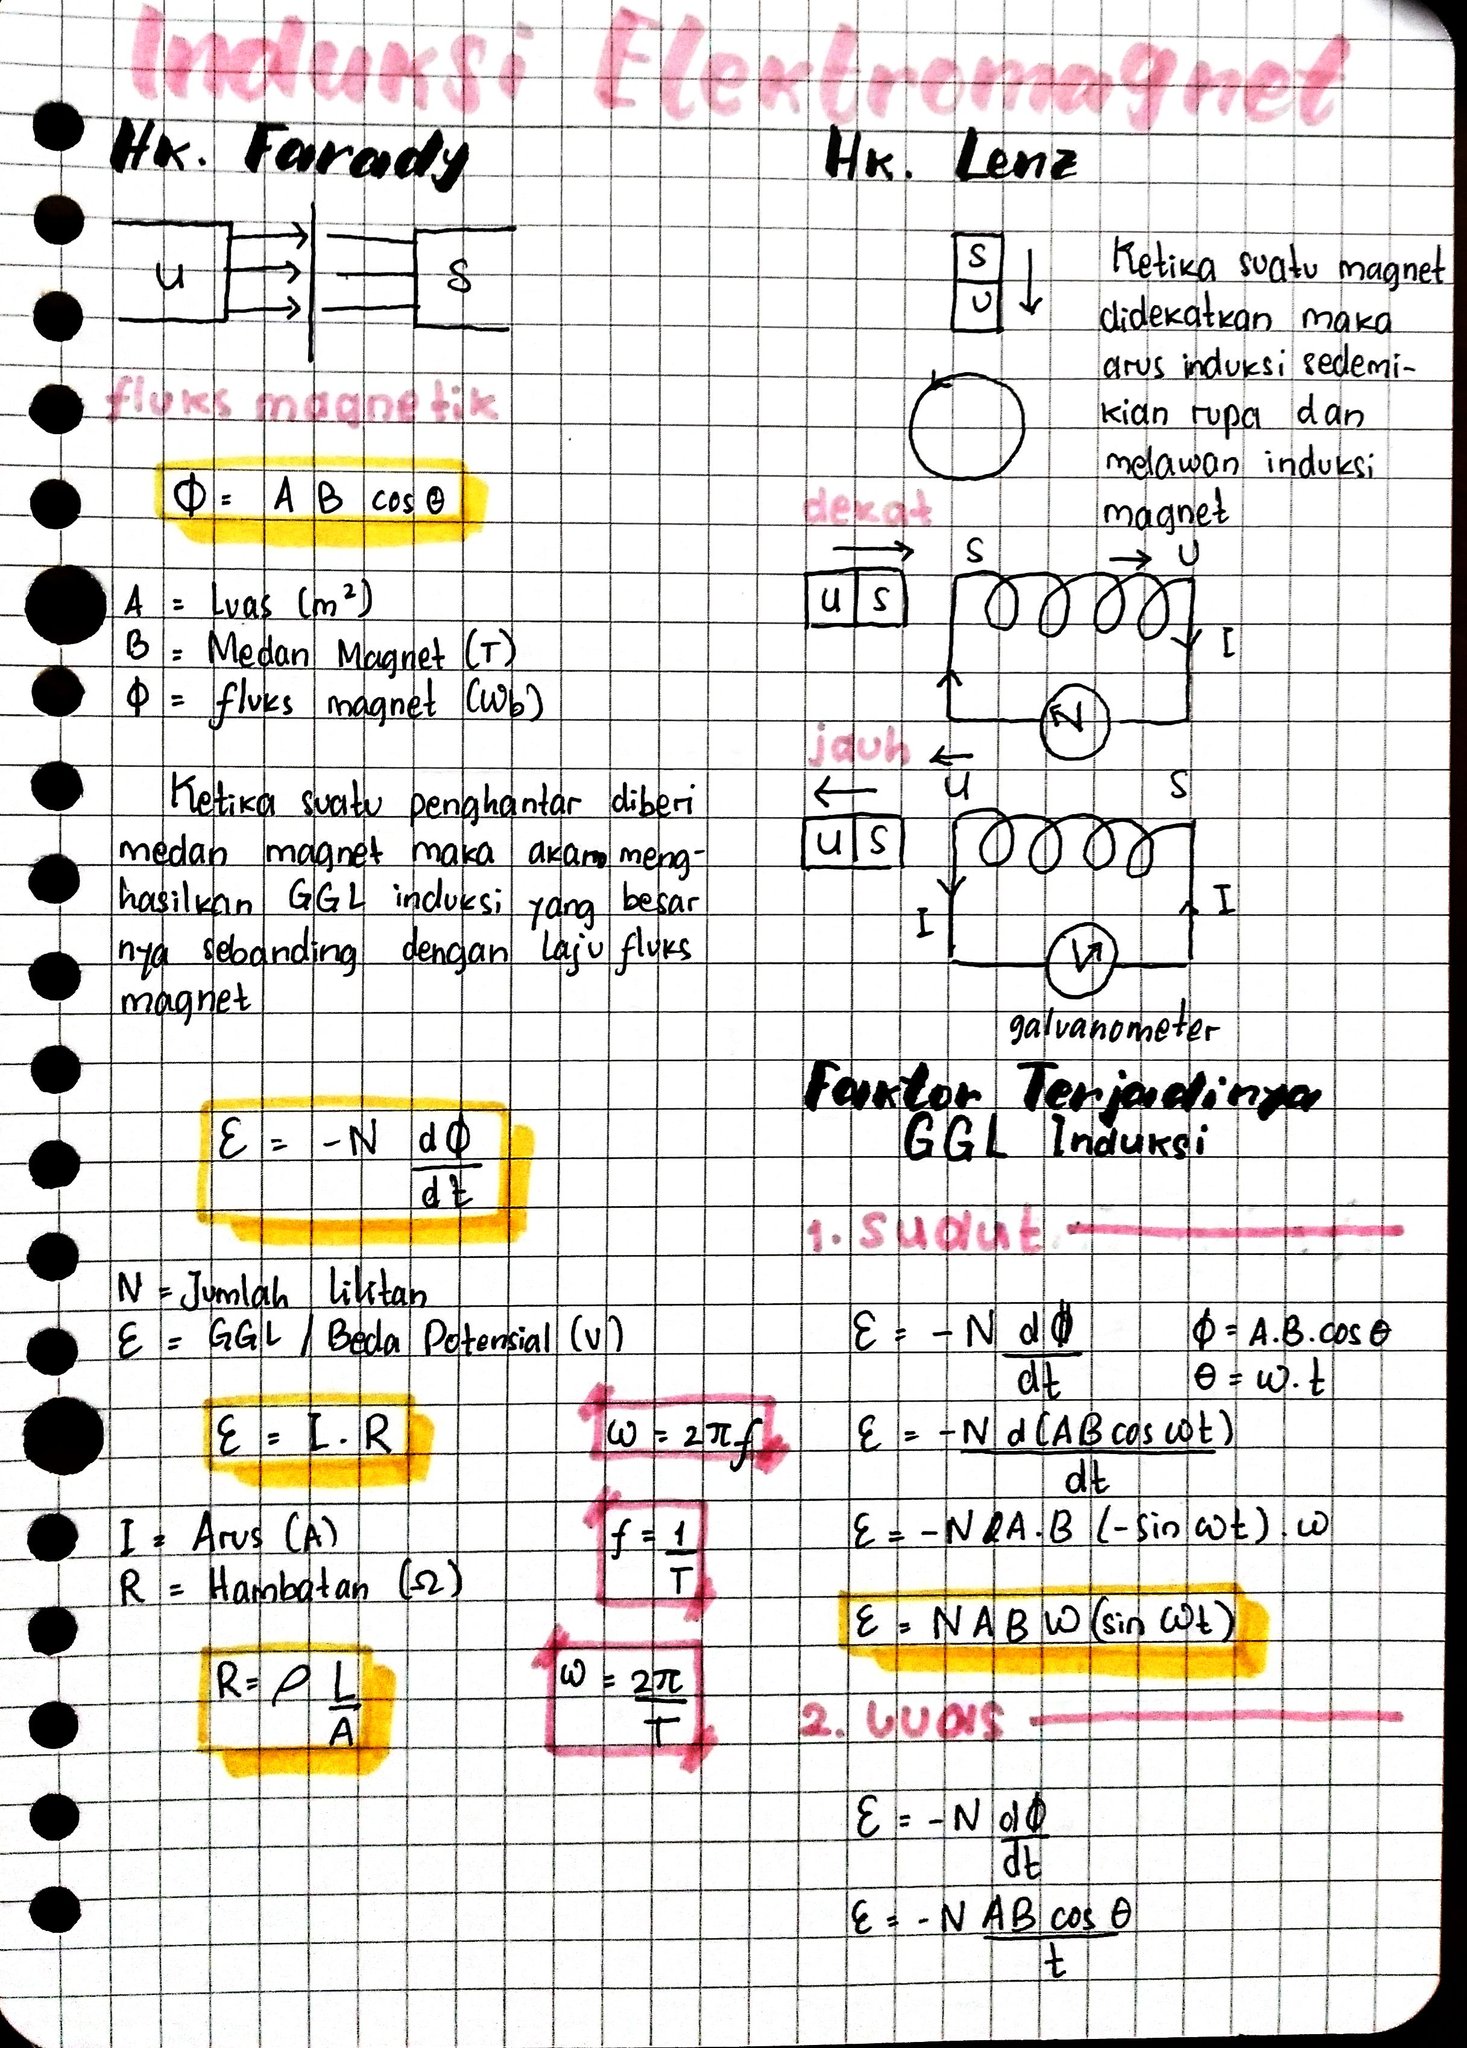 Induksi Elektromagnet
Hk. Farady
U
S
fluks magnetik
Φ = A B cos θ
A = Luas (m²)
B = Medan Magnet (T)
Φ = fluks magnet (Wb)
Ketika suatu penghantar diberi
medan magnet maka akan meng-
hasilkan GGL induksi yang besar
nya sebanding dengan laju fluks
magnet
ε = -N dΦ/dt
N = Jumlah lilitan
ε = GGL / Beda Potensial (V)
ε = I . R
I = Arus (A)
R = Hambatan (Ω)
R = ρ L/A
ω = 2πf
f = 1/T
ω = 2π/T
Hk. Lenz
S
U
Ketika suatu magnet
didekatkan maka
arus induksi sedemi-
kian rupa dan
melawan induksi
magnet
dekat
S U
U S
I
jauh
U S
U S
I I
galvanometer
Faktor Terjadinya
GGL Induksi
1. Sudut
ε = -N dΦ/dt Φ = A.B.cos θ
θ = ω.t
ε = -N d(AB cos ωt)/dt
ε = -N A.B (-sin ωt) . ω
ε = N A B ω (sin ωt)
2. Luas
ε = -N dΦ/dt
ε = -N AB cos θ/t